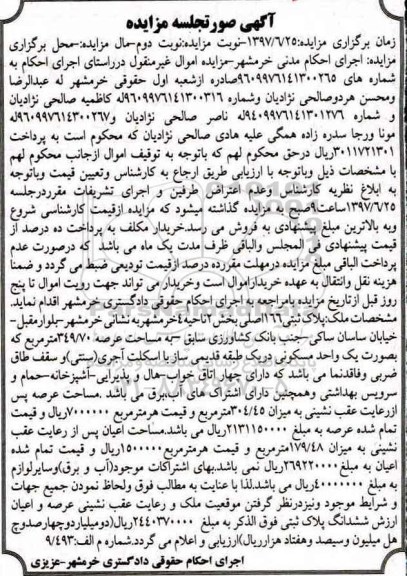 آگهی صورتجلسه مزایده
زمان برگزاری مزایده:۱۳۹۷/۶/۲۵-نوبت مزایده:نوبت دوم-مال مزایده:-محل برگزاری
مزایده: اجرای احکام مدنی خرمشهر-مزایده اموال غیرمنقول درراستای اجرای احکام به
شماره های ۹۶۰۹۹۷۶۱۴۱۳۰۰۲۶۵صادره ازشعبه اول حقوقی خرمشهر له عبدالرضا
ومحسن هردوصالحی نژادیان وشماره ۹۶۰۹۹۷۶۱۴۱۳۰۰۳۱۶له کاظمیه صالحی نژادیان
و شماره ۹۴۰۹۹۷۶۱۴۱۳۰۱۲۷۶له ناصر صالحی نژادیان و۹۶۰۹۹۷۶۱۴۱۳۰۰۲۶۷له
مونا ورجا سدره زاده همگی علیه هادی صالحی نژادیان که محکوم است به پرداخت
۳۰۱۱۷۲۱۳۰۱ریال درحق محکوم لهم که باتوجه به توقیف اموال ازجانب محکوم لهم
با مشخصات ذیل وباتوجه با ارزیابی طریق ارجاع به کارشناس وتعیین قیمت وباتوجه
به ابلاغ نظریه کارشناس وعدم اعتراض طرفین و اجرای تشریفات مقرردرجلسه
۱۳۹۷/۶/۲۵ساعت۹صبح به مزایده گذاشته میشود که مزایده ازقیمت کارشناسی شروع
وبه بالاترین مبلغ پیشنهادی به فروش می رسد.خریدار مکلف به پرداخت ده درصد از
قیمت پیشنهادی فی المجلس والباقی ظرف مدت یک ماه می باشد که درصورت عدم
پرداخت الباقی مبلغ مزایده درمهلت مقررده درصد ازقیمت تودیعی ضبط می گردد و ضمنا
هزینه نقل وانتقال به عهده خریداراموال است وخریدار می تواند جهت رویت اموال تا پنج
روز قبل ازتاریخ مزایده بامراجعه به اجرای احکام حقوقی دادگستری خرمشهر اقدام نماید.
مشخصات ملک:پلاک ثبتی۱۱۶۶اصلی بخش۲ناحیه۴خرمشهربه نشانی خرمشهر-بلوارمقبل-
خیابان ساسان ساکی-جنب بانک کشاورزی سابق -به مساحت عرصه ۳۴۹/۷۰مترمربع که
بصورت یک واحد مسکونی دریک طبقه قدیمی ساز با اسکلت آجری(سنتی)و سقف طاق
ضربی وفاقدنما می باشد که دارای چهار اتاق خواب-هال و پذیرایی-آشپزخانه-حمام و
سرویس بهداشتی وهمچنین دارای اشتراک های آب،برق می باشد .مساحت عرصه پس
ازرعایت عقب نشینی به میزان ۳۰۴/۴۵مترمربع و قیمت هرمترمربع ۷۰۰۰۰۰۰ریال و قیمت
تمام شده عرصه به مبلغ ۲۱۳۱۱۵۰۰۰۰ریال می باشد.مساحت اعیان پس از رعایت عقب
نشینی به میزان ۱۷۹/۴۸مترمربع و قیمت هرمترمربع۱۵۰۰۰۰۰ریال و قیمت تمام شده
اعیان به مبلغ۲۶۹۲۲۰۰۰۰ریال نمی باشد.بهای اشتراکات موجود(آب و برق)وسایرلوازم
به مبلغ ۴۰۰۰۰۰۰۰ریال می باشد.لذا با عنایت به مطالب فوق ولحاظ نمودن جمیع جهات
و شرایط موجود ونیزدرنظر گرفتن موقعیت ملک و رعایت عقب نشینی عرصه و اعیان
ارزش ششدانگ پلاک ثبتی فوق الذکر به مبلغ ۲۴۴۰۳۷۰۰۰۰ ریال(دومیلیاردوچهارصدوچ
هل میلیون وسیصد وهفتاد هزارریال)ارزیابی و اعلام می گردد.شماره م الف:۹/۴۹۳
اجرای احکام حقوقی دادگستری خرمشهر-عزیزی